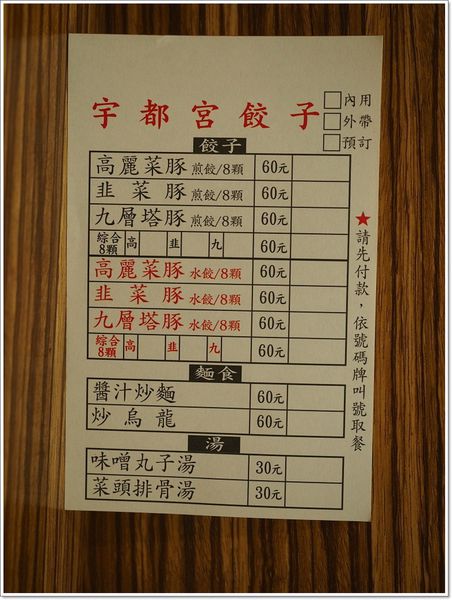 宇都宮餃子
內用
外帶
預訂
餃子
高麗菜豚 煎餃/8顆 60元
韭菜豚 煎餃/8顆 60元
九層塔豚 煎餃/8顆 60元
綜合8顆 高 韭 九 60元
高麗菜豚 水餃/8顆 60元
韭菜豚 水餃/8顆 60元
九層塔豚 水餃/8顆 60元
綜合8顆 高 韭 九 60元
麵食
醬汁炒麵 60元
炒烏龍 60元
湯
味噌丸子湯 30元
菜頭排骨湯 30元
★請先付款，依號碼牌叫號取餐